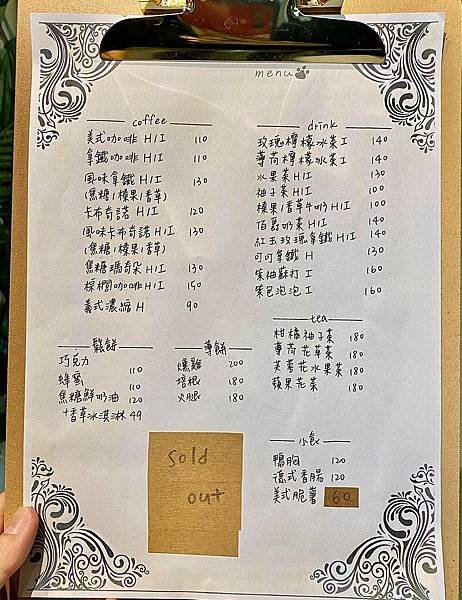 menu
coffee
美式咖啡 H/I 110
拿鐵咖啡 H/I 110
風味拿鐵 H/I 130
(焦糖/榛果/香草)
卡布奇諾 H/I 120
風味卡布奇諾 H/I 130
(焦糖/榛果/香草)
焦糖瑪奇朵 H/I 130
榛櫚咖啡 H/I 150
義式濃縮 H 90
drink
玫瑰檸檬冰茶 I 140
薄荷檸檬冰茶 I 140
水果茶 H/I 130
柚子茶 H/I 100
榛果/香草牛奶 H/I 100
伯爵奶茶 H/I 140
紅玉玫瑰拿鐵 H/I 140
可可拿鐵 H 130
柴柚蘇打 I 160
柴色泡泡 I 160
tea
柑橘柚子茶 180
薄荷花草茶 180
芙蓉花水果茶 180
蘋果花茶 180
鬆餅
巧克力 110
蜂蜜 110
焦糖鮮奶油 120
+香草冰淇淋 49
薄餅
燻雞 200
培根 180
火腿 180
小食
鴨胸 120
德式香腸 120
美式脆薯 60
sold
out